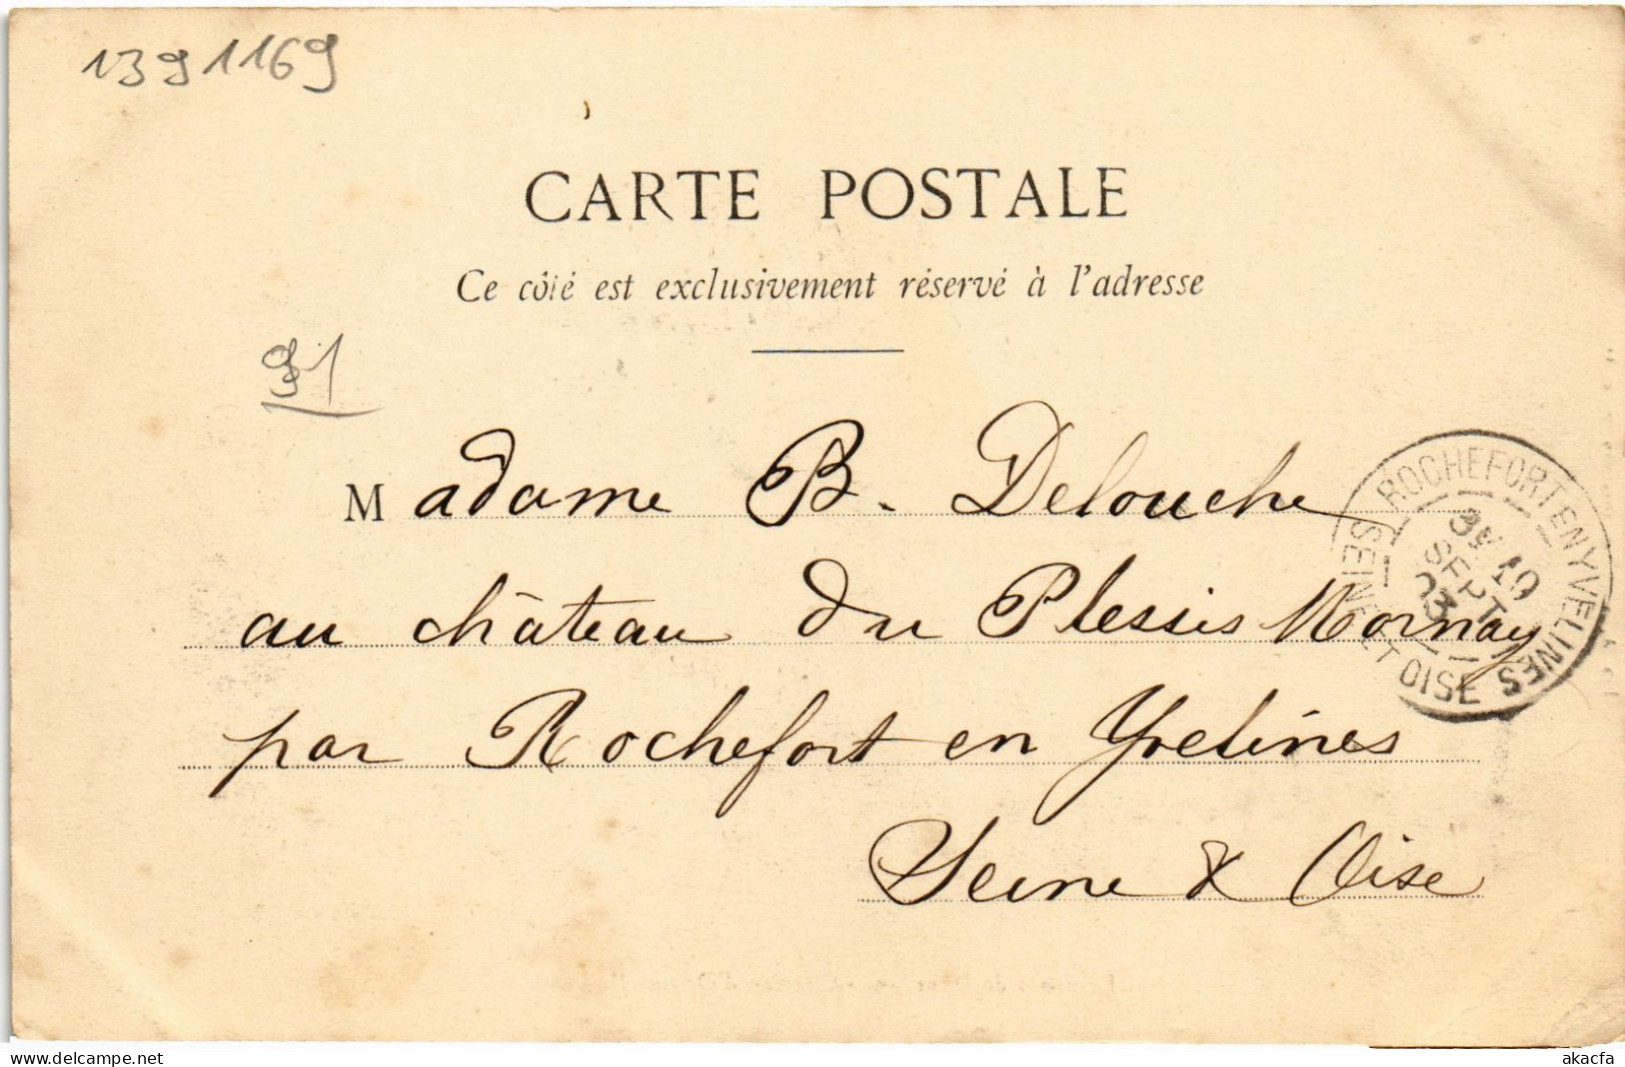 1391169
CARTE POSTALE
Ce côté est exclusivement réservé à l'adresse
91
Madame B. Delouche
au château du Plessis Mornay
par Rochefort en Yvelines
Seine & Oise
ROCHEFORT EN YVELINES
SEINE ET OISE
SEPT
03
www.delcampe.net
akacfa